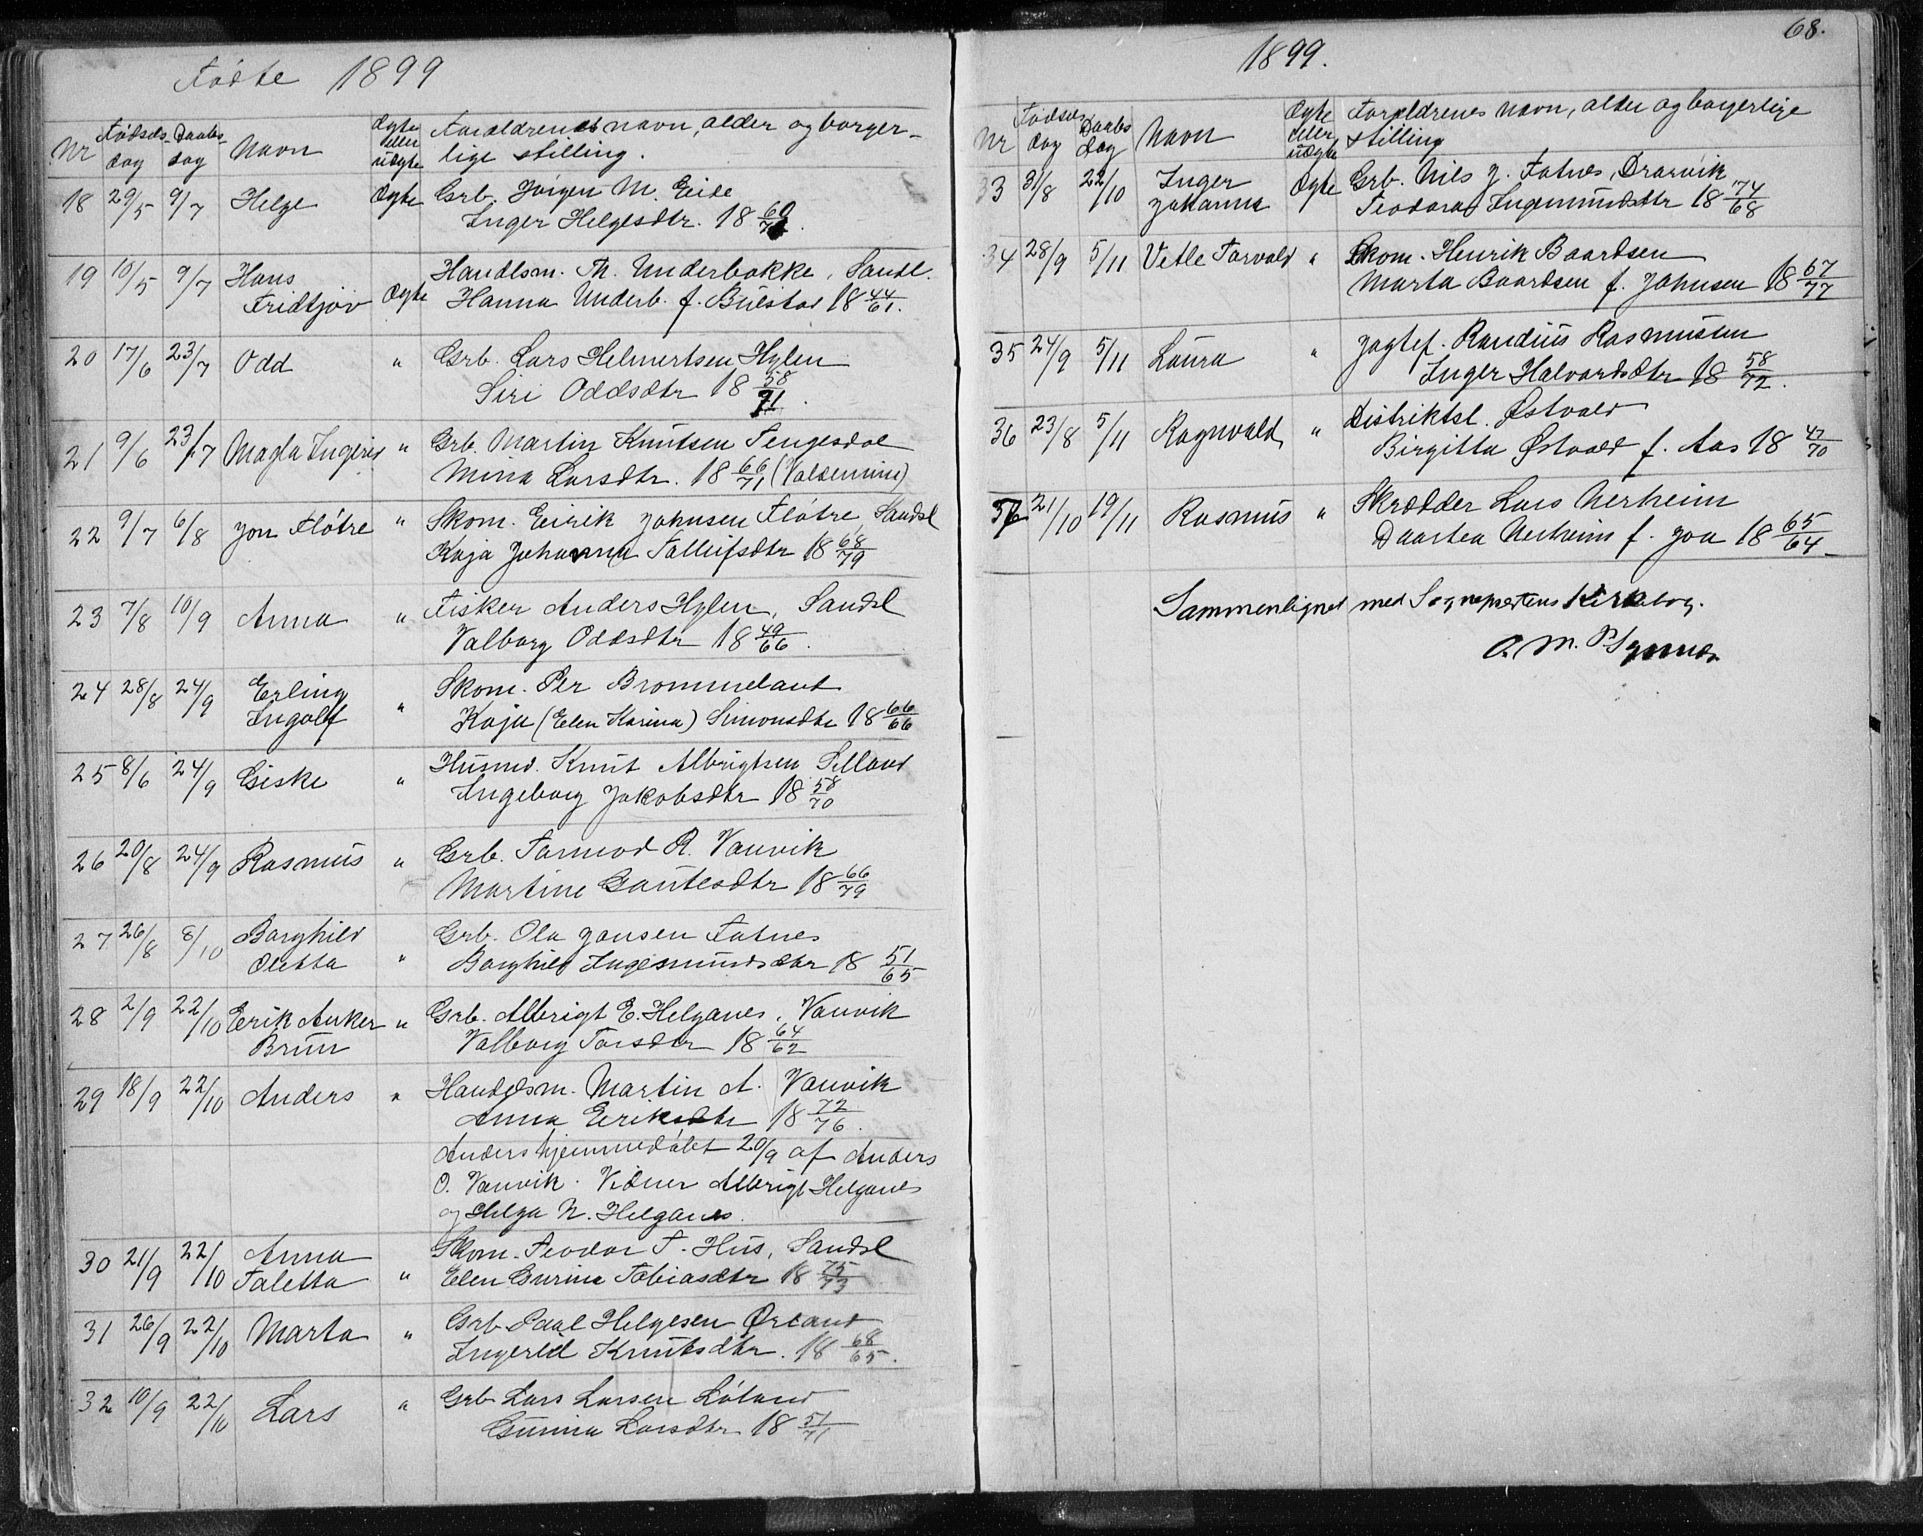 Fødte 1899
Nr Fødsels- dag Daabs- dag Navn Ægte eller uægte Forældrenes navn, alder og borger-
lige stilling.
18 29/5 9/7 Helge Ægte Grb. Jørgen M. Eide
Inger Helgesdtr. 18
19 10/5 9/7 Hans Handlsm. Th. Underbakke, Sandl.
Fridtjov Ægte Hanna Underb. f. Buestad 18 44/61.
20 17/6 23/7 Odd " Grb. Lars Helmertsen Hylen
Siri Oddsdtr 18 58/71.
21 9/6 23/7 Magla Ingerid " Grb. Martin Knutsen Tengesdal
Mina Larsdtr. 18 66/71 (Valdemina)
22 9/7 6/8 Jon Fløtre " Skom. Eirik Johnsen Fløtre, Sandsl
Kaja Johanna Tolleifsdtr 18 68/79
23 7/8 10/9 Anna " Fisker Anders Hylen, Sandsl
Valborg Oddsdtr 18 49/66.
24 28/8 24/9 Erling Skom. Per Brommeland
Ingolf " Kaja (Elen Karina) Simonsdtr 18 66/66
25 8/6 24/9 Giske " Husmd. Knut Albrigtsen Selland
Ingeborg Jakobsdtr 18 58/70
26 20/8 24/9 Rasmus " Grb. Tormod R. Vanvik
Martine Gautesdtr 18 66/79
27 26/8 8/10 Borghild Grb. Ola Jonsen Fatnes
Oletta " Borghild Ingemundsdtr 18 51/65
28 2/9 22/10 Erik Anker " Grb. Albrigt E. Helganes, Vanvik
Brun Valborg Torsdtr 18 64/62
29 18/9 22/10 Anders " Handelsm. Martin A. Vanvik
Anna Eriksdtr 18 72/76.
Anders hjemmedøbt 20/9 af Anders
O. Vanvik. Vidner Albrigt Helganes
og Helga N. Helganes.
30 21/9 22/10 Anna Skom. Teodor T. Hus, Sandsl
Taletta " Elen Gurine Tobiasdtr 18 75/73
31 26/9 22/10 Marta " Grb. Paal Helgesen Ørland
Ingerid Knutsdtr. 18 68/65.
32 10/9 22/10 Lars " Grb Lars Larsen Løland
Gunna Larsdtr 18 51/71
68.
1899.
Nr Fødsels dag Daabs dag Navn Ægte eller uægte Forældrenes navn, alder og borgerlige
stilling
33 31/8 22/10 Inger Ægte Grb. Nils J. Fatnes, Drarvik
Johanna Teodora Ingemundsdtr 18 74/68
34 28/9 5/11 Vetle Torvald " Skom. Henrik Baardsen
Marta Baardsen f. Johnsen 18 67/77
35 24/9 5/11 Laura " Jagtef. Randius Rasmussen
Inger Halvordsdtr 18 58/72.
36 23/8 5/11 Ragnvald " Distriktsl. Østvold
Birgitta Østvold f. Aas 18 47/70
37 21/10 19/11 Rasmus " Skrædder Lars Nerheim
Daartea Nerheim f. Joa 18 65/64
Sammenlignet med Sogneprestens Kirkebog.
O. M.